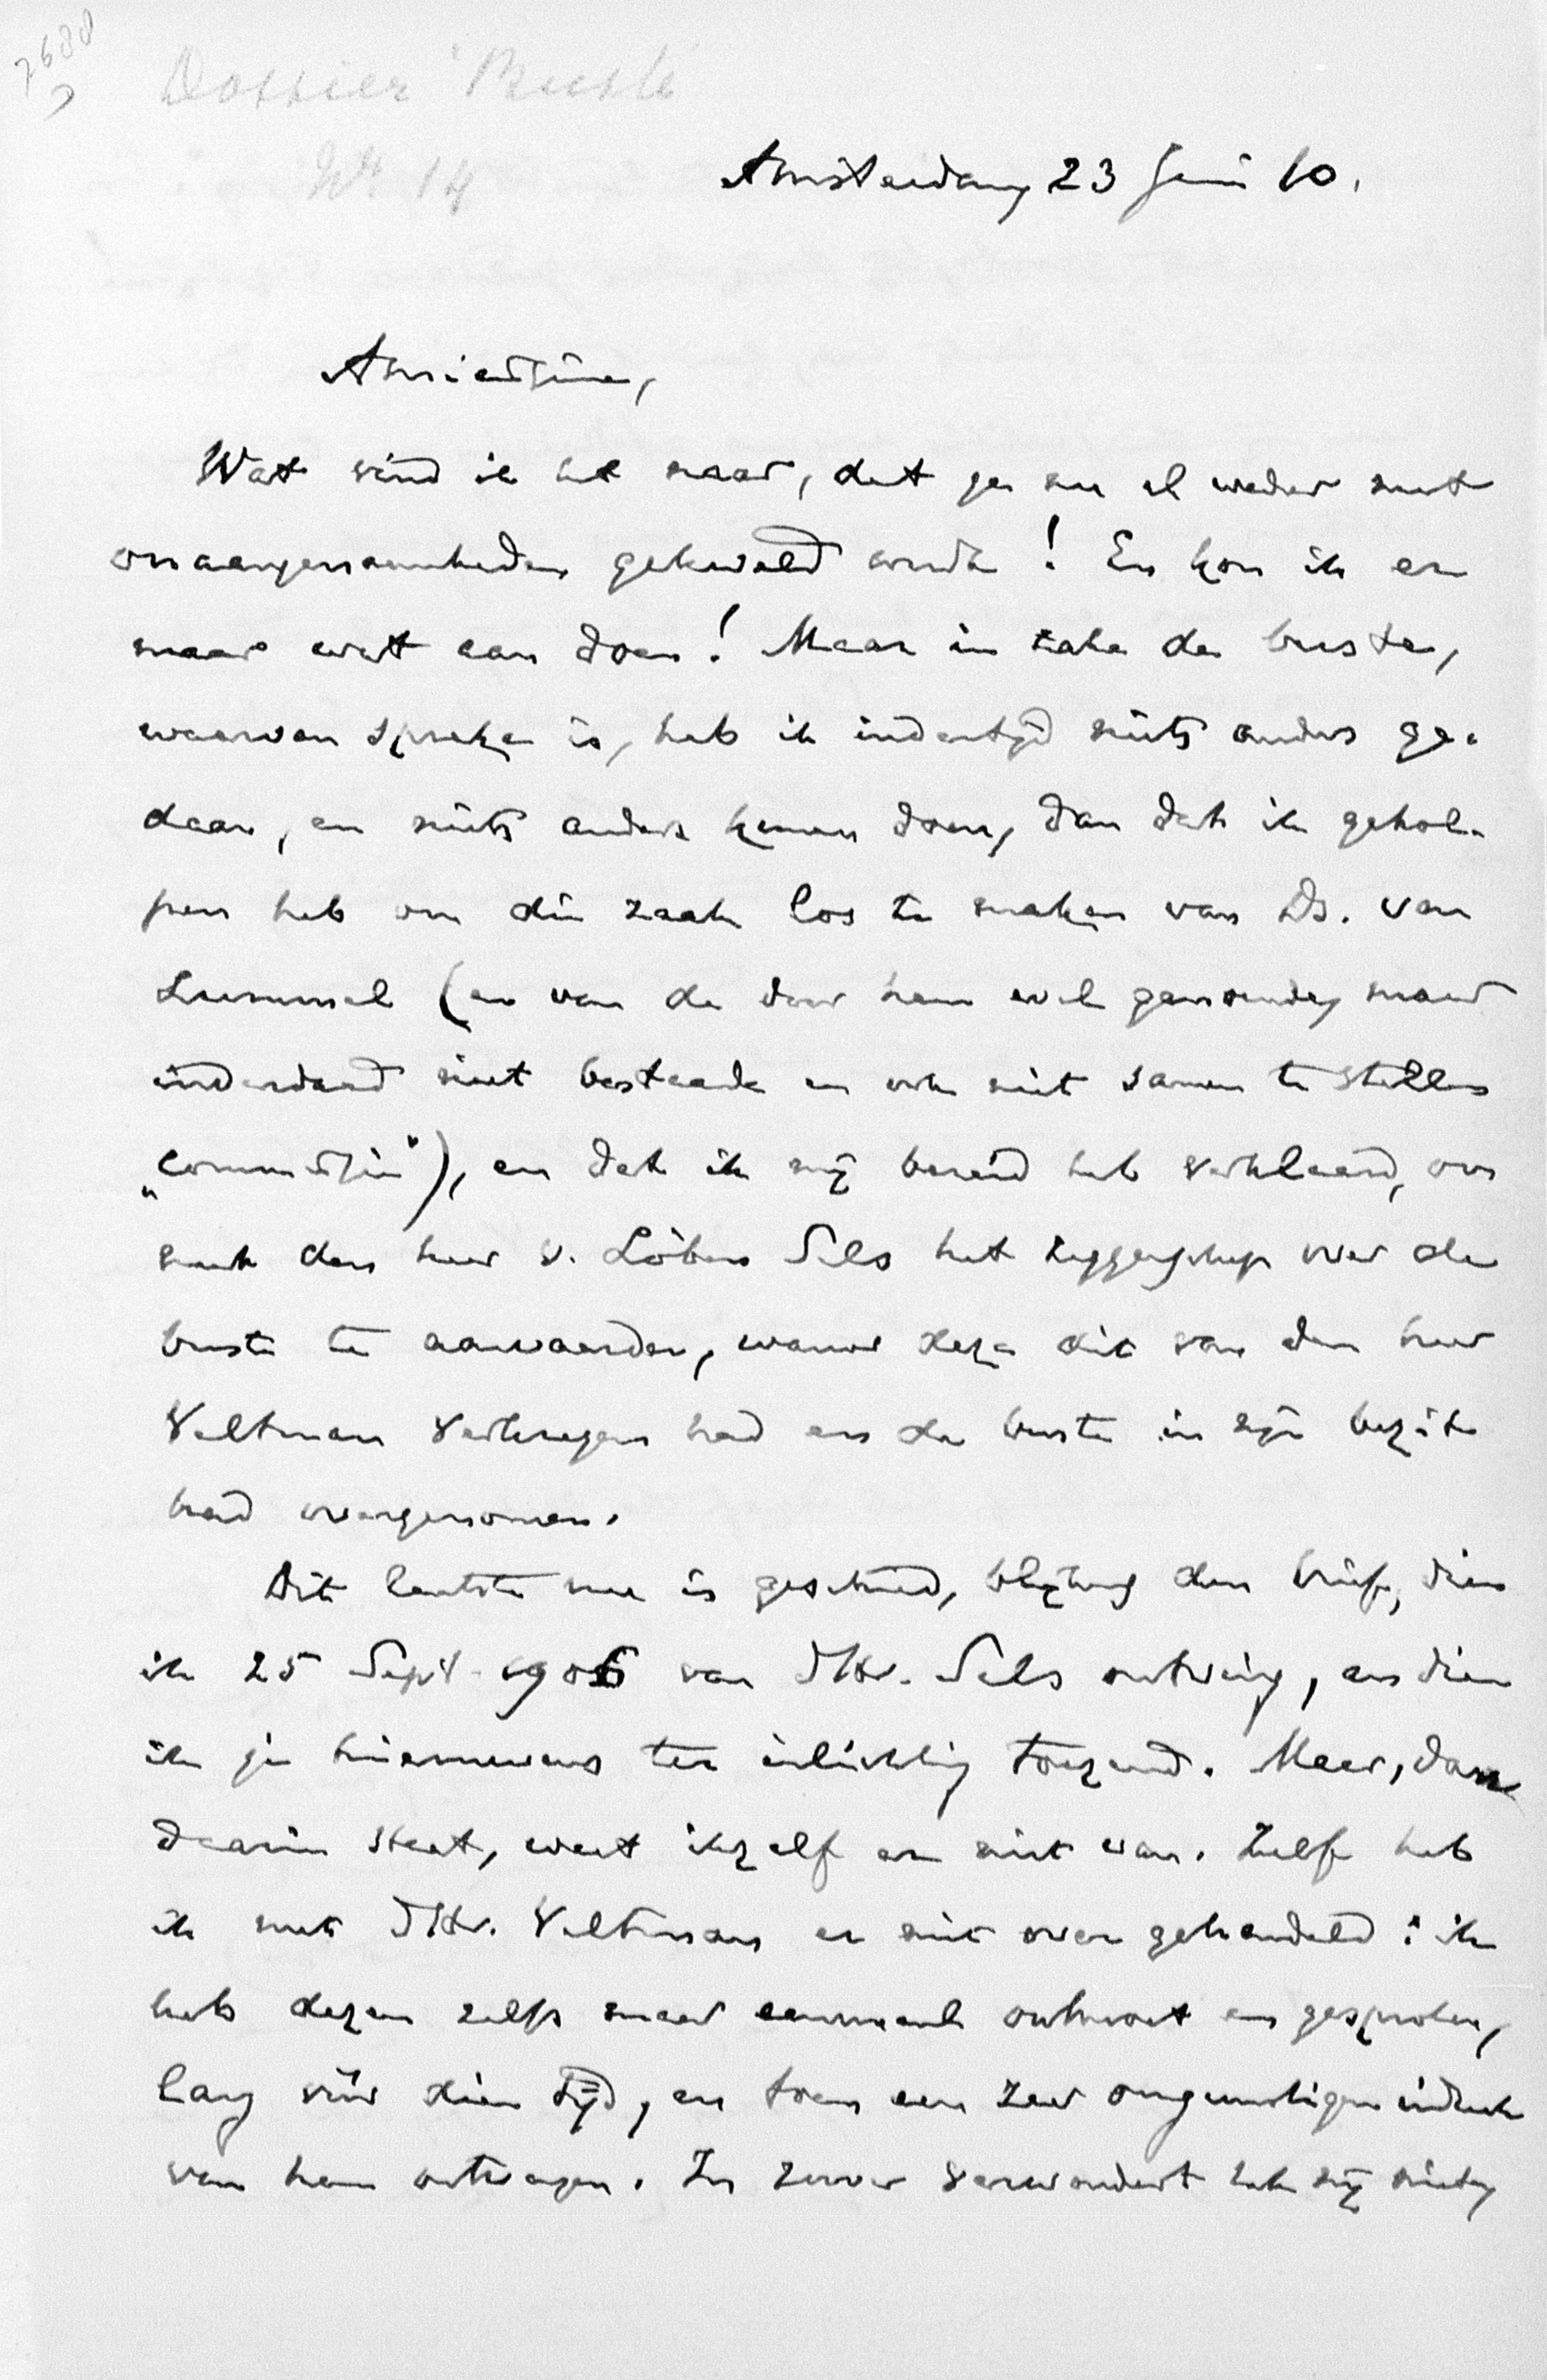 7688
Dossier Buste
No. 14
Amsterdam, 23 Juni 10.
Amicissime,
Wat vind ik het naar, dat je nu al weder met
onaangenaamheden gekweld wordt! En kon ik er
maar wat aan doen! Maar in zake de buste,
waarvan sprake is, heb ik indertijd niets anders ge-
daan, en niets anders kunnen doen, dan dat ik gehol-
pen heb om die zaak los te maken van Ds. van
Lummel (en van de door hem wel genoemde, maar
inderdaad niet bestaande en ook niet samen te stellen
"commissie"), en dat ik mij bereid heb verklaard, om
met den heer v. Löben Sels het zeggenschap over de
buste te aanvaarden, wanneer deze dit van den heer
Veltman verkregen had en de buste in zijn bezit
had overgenomen.
Dit laatste nu is geschied, blijkens den brief, dien
ik 25 Sept. 1906 van dHr. Sels ontving, en dien
ik je hiernevens ter inlichting toezend. Meer, dan
daarin staat, weet ikzelf er niet van. Zelf heb
ik met dHr. Veltman er niet over gehandeld: ik
heb dezen zelfs maar eenmaal ontmoet en gesproken,
lang vóór dien tijd, en toen een zeer ongunstigen indruk
van hem ontvangen. In zoover verwondert het mij niet,